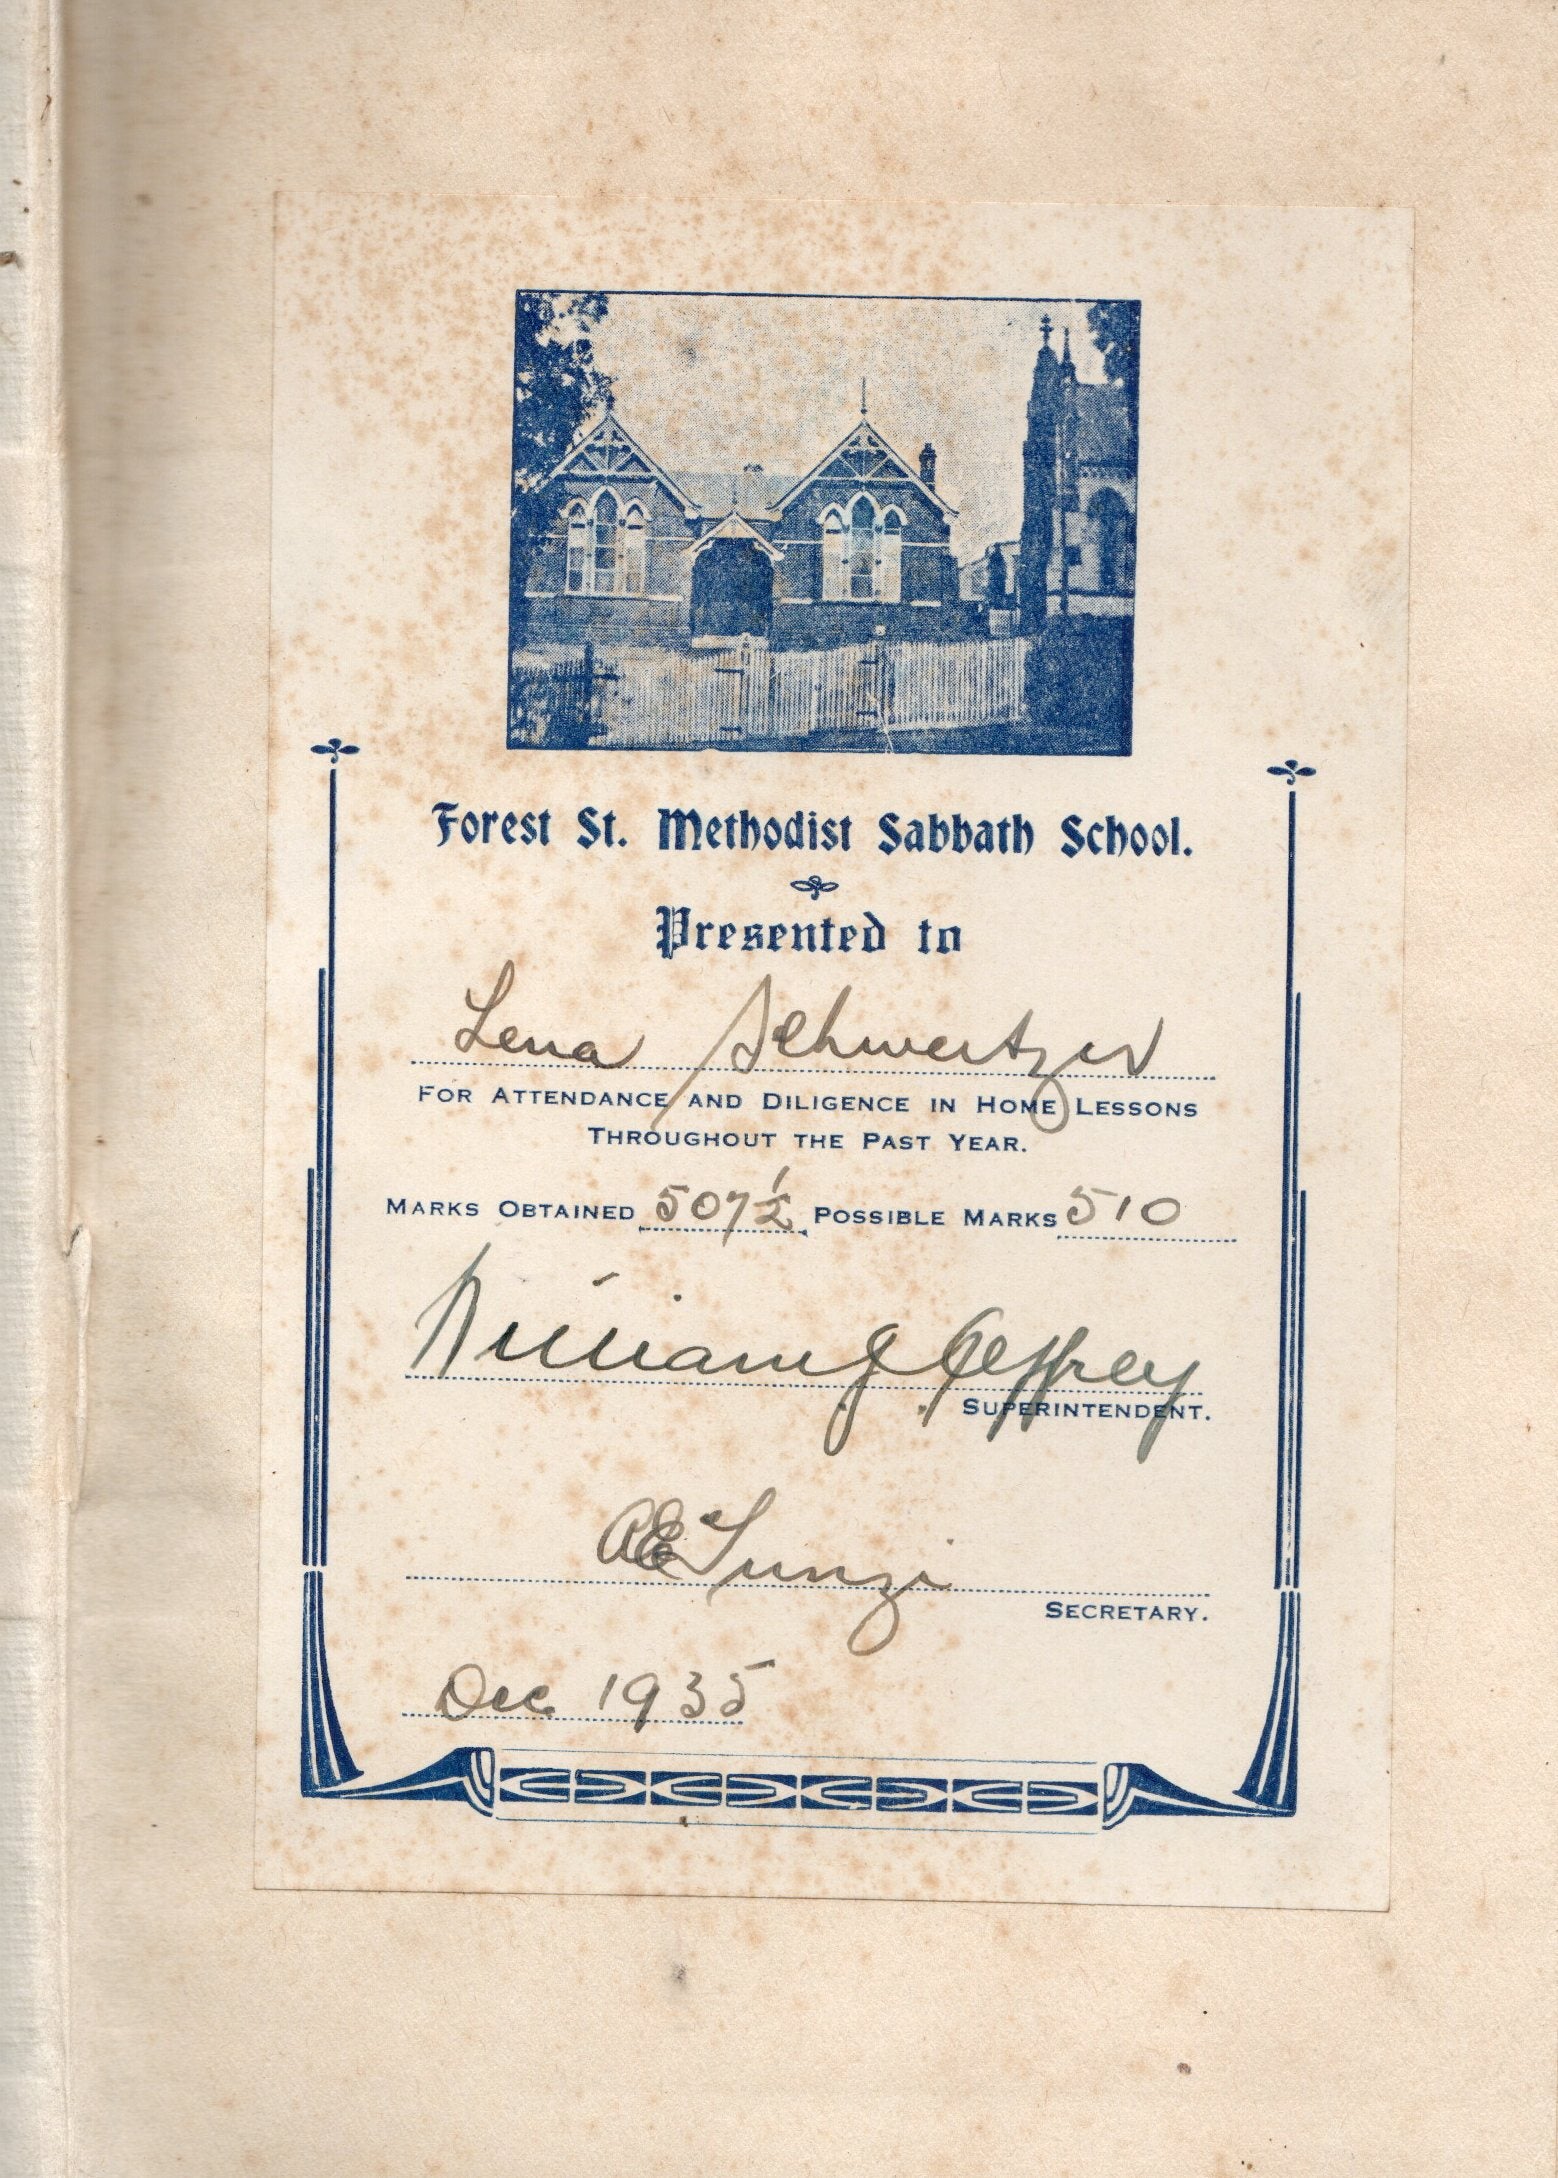 Forest St. Methodist Sabbath School.
Presented to
Lena Schwertzer
FOR ATTENDANCE AND DILIGENCE IN HOME LESSONS
THROUGHOUT THE PAST YEAR.
MARKS OBTAINED 507½ POSSIBLE MARKS 510
William J Jeffrey
SUPERINTENDENT.
AE
SECRETARY.
Dec 1935